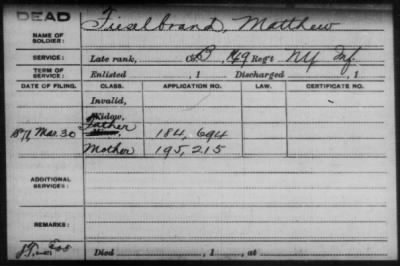 DEAD
NAME OF SOLDIER: Fieselbrand, Matthew
SERVICE: Late rank, Co. B, 149 Reg't NY Inf.
TERM OF SERVICE: Enlisted , 1 Discharged , 1
DATE OF FILING. CLASS. APPLICATION NO. LAW. CERTIFICATE NO.
Invalid,
Widow,
1871 Mar. 30 Father 184,694
Mother 195,215
ADDITIONAL SERVICES:
REMARKS:
Died , 1 , at